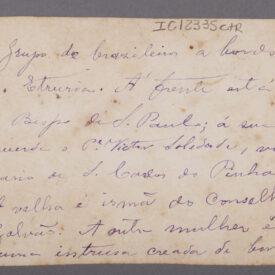 IC12335CAR
Grupo de brasileiros a bordo
. Etruria. A' frente está
Bispo de S. Paulo; á su
querda o Pe. Victor Soledade, vi
ario de S. Carlos do Pinha
A velha é irmã do Conselh
alvão. A outra mulher é
uma intrusa creada de bor